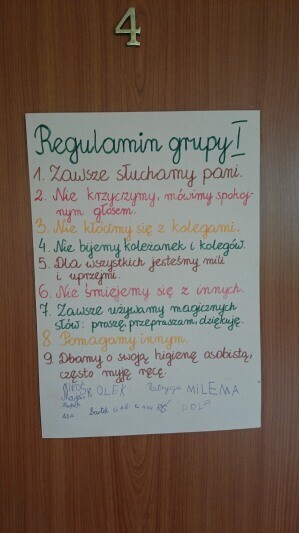 4
Regulamin grupy I
1. Zawsze słuchamy pani.
2. Nie krzyczymy, mówimy spokoj-
nym głosem.
3. Nie kłócimy się z kolegami.
4. Nie bijemy koleżanek i kolegów.
5. Dla wszystkich jesteśmy mili
i uprzejmi.
6. Nie śmiejemy się z innych.
7. Zawsze używamy magicznych
słów: proszę, przepraszam, dziękuję.
8. Pomagamy innym.
9. Dbamy o swoją higienę osobistą,
często myję ręce.
OLEK Patrycja MiLEMA
Bartek